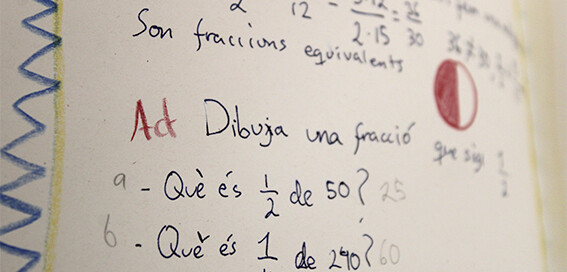 12 - 3·12/2·15 = 36/30
Son fraccions equivalents
Ad Dibuja una fracció que sigi 1/2
a - Què és 1/2 de 50? 25
b - Què és 1 de 240? 60